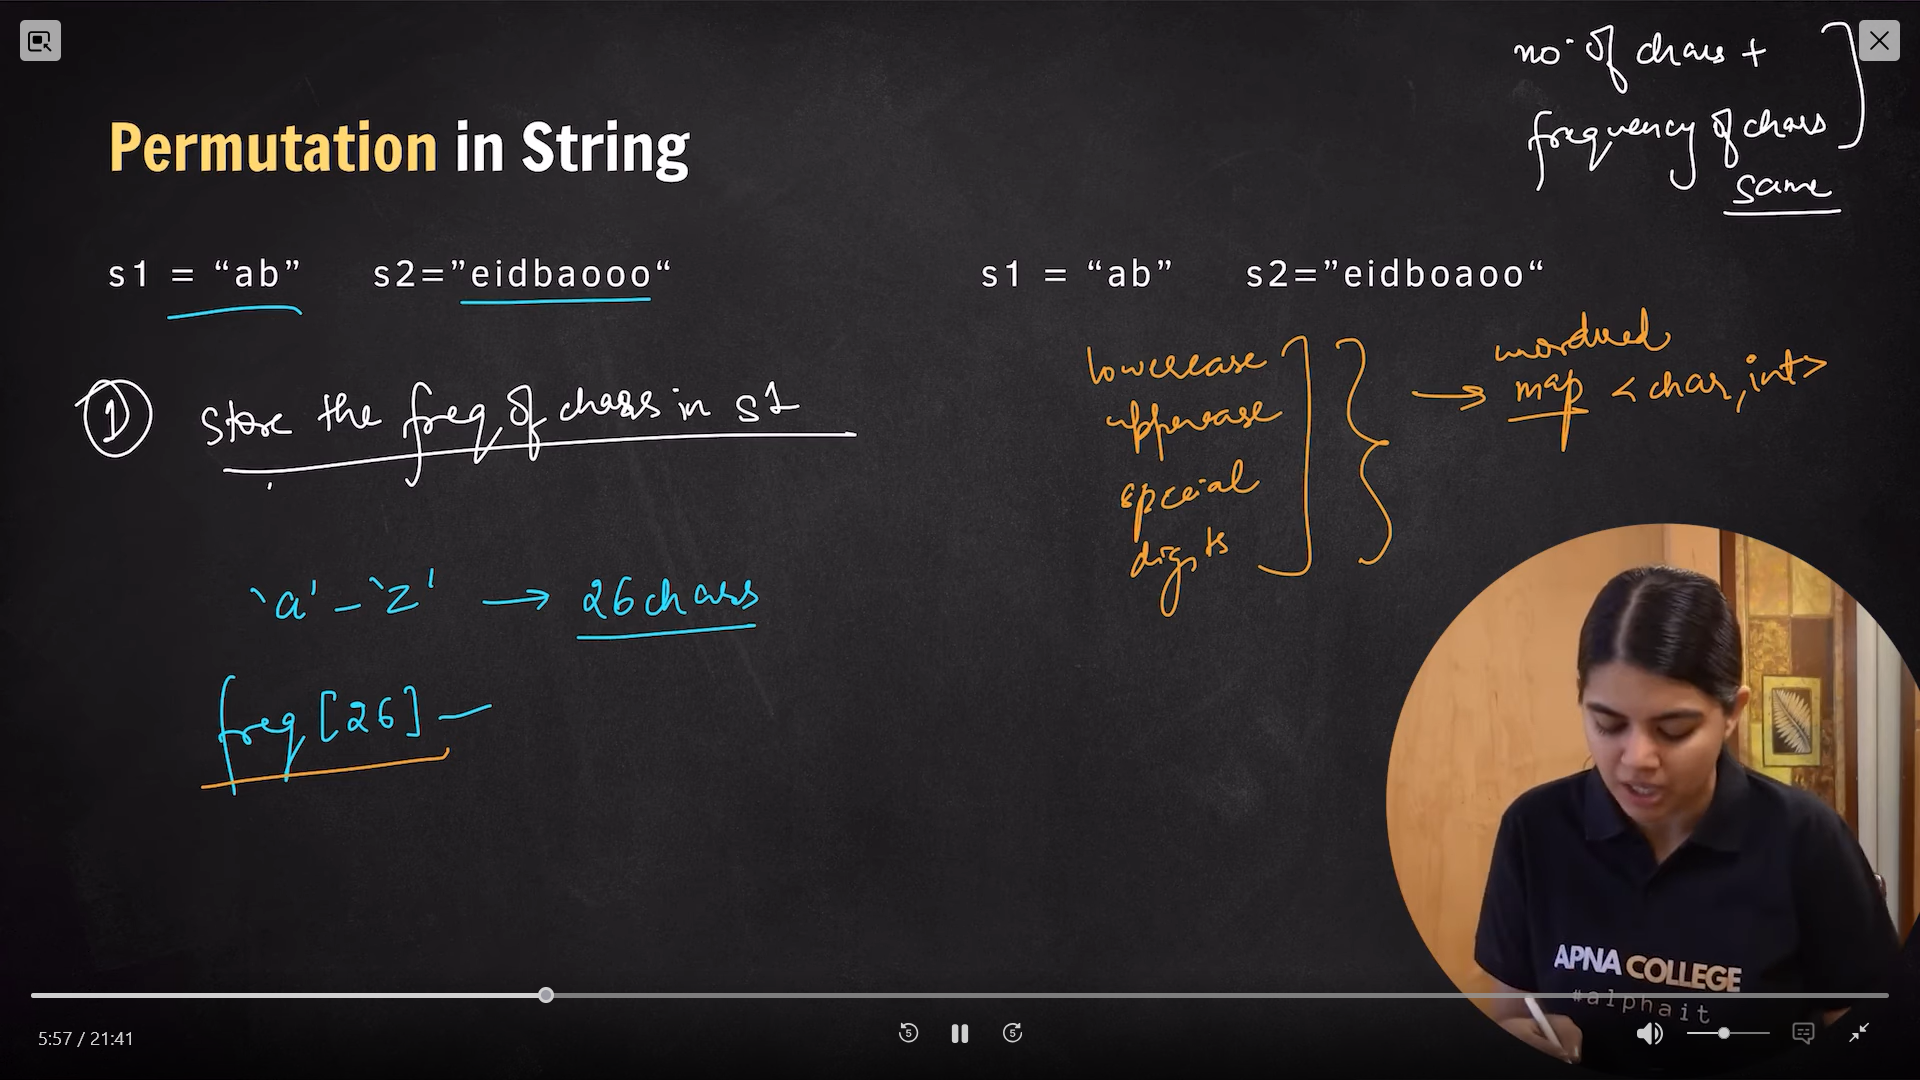 no. of chars +
frequency of chars
same
Permutation in String
s1 = “ab” s2=”eidbaooo“
s1 = “ab” s2=”eidboaoo“
1 Store the freq of chars in s1
'a' - 'z' → 26 chars
freq [26] -
lowercase
uppercase
special
digits
→ map < char, int>
APNA COLLEGE
#alphait
5:57 / 21:41
5
5